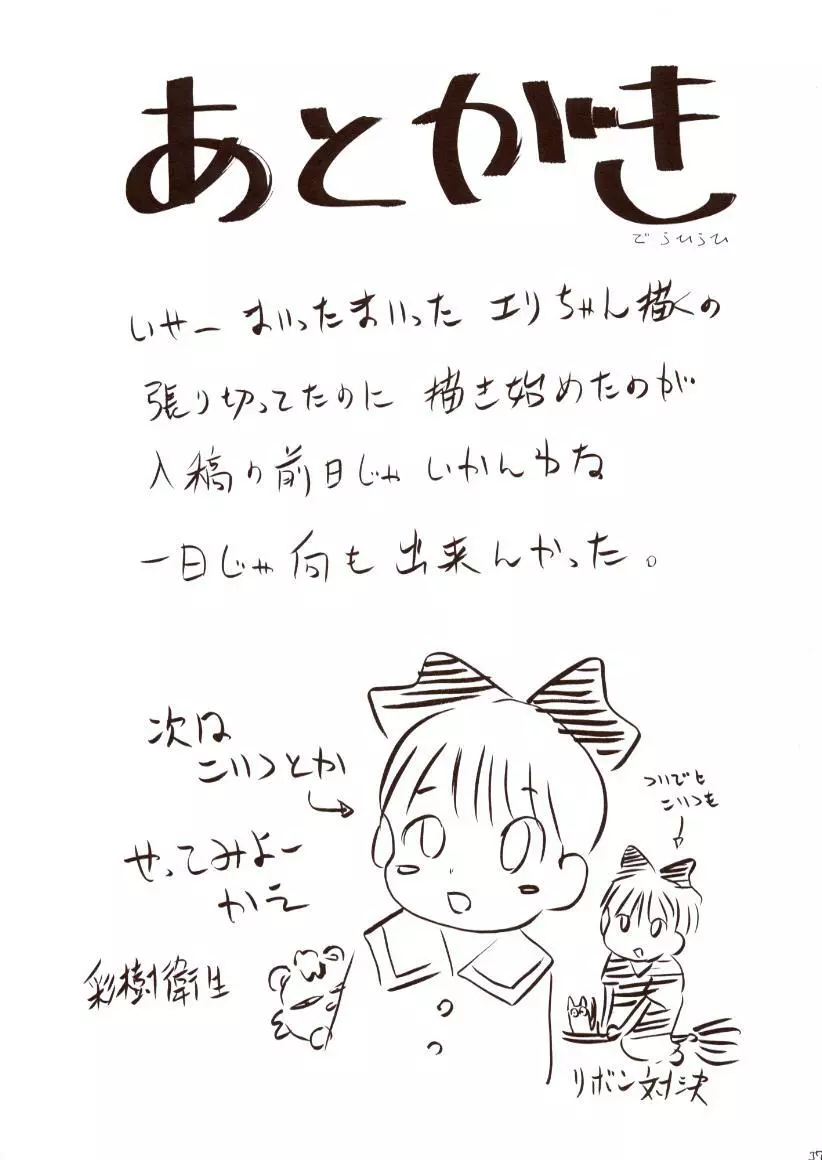 あとがき
でらひらひ
いやー まいったまいった エリちゃん描くの
張り切ってたのに 描き始めたのが
入稿の前日じゃ いかんわな
一日じゃ何も出来んかった。
次は
こいつとか
やってみよー
かえ
ついでに
こいつも
彩樹衛生
リボン対決
37